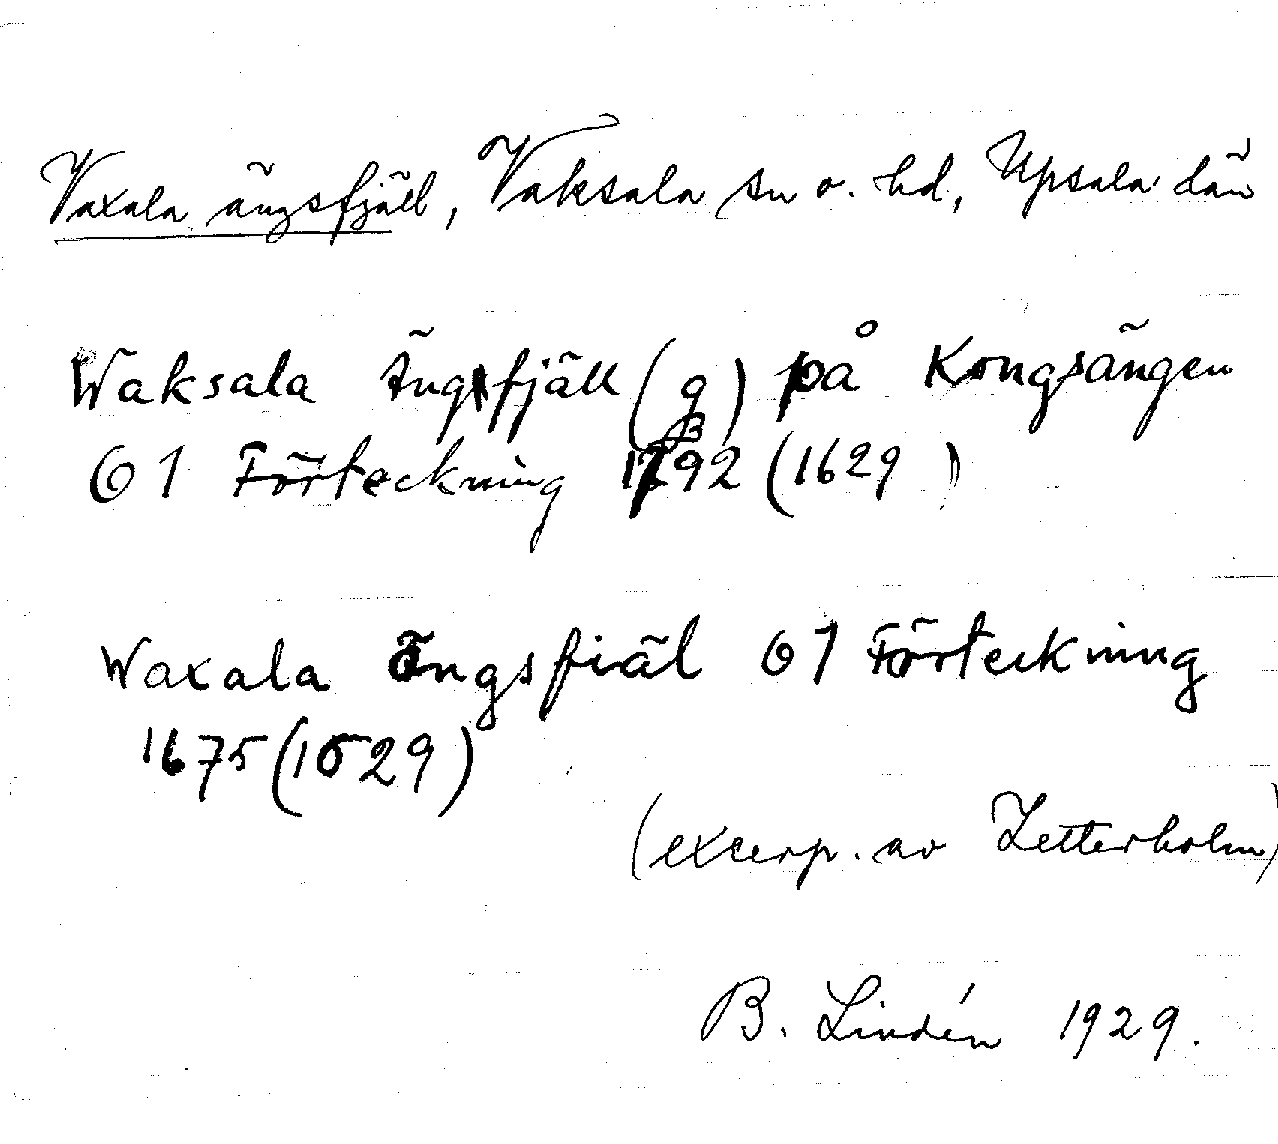 Vaxala ängsfjäll, Vaksala sn o. hd, Upsala län
Waksala Ängsfjäll (g) på Kongsängen
G1 Förteckning 1692 (1629)
Waxala Engsfiäl G1 Förteckning
1675 (1629)
(excerp. av Zetterholm)
B. Lindén 1929.